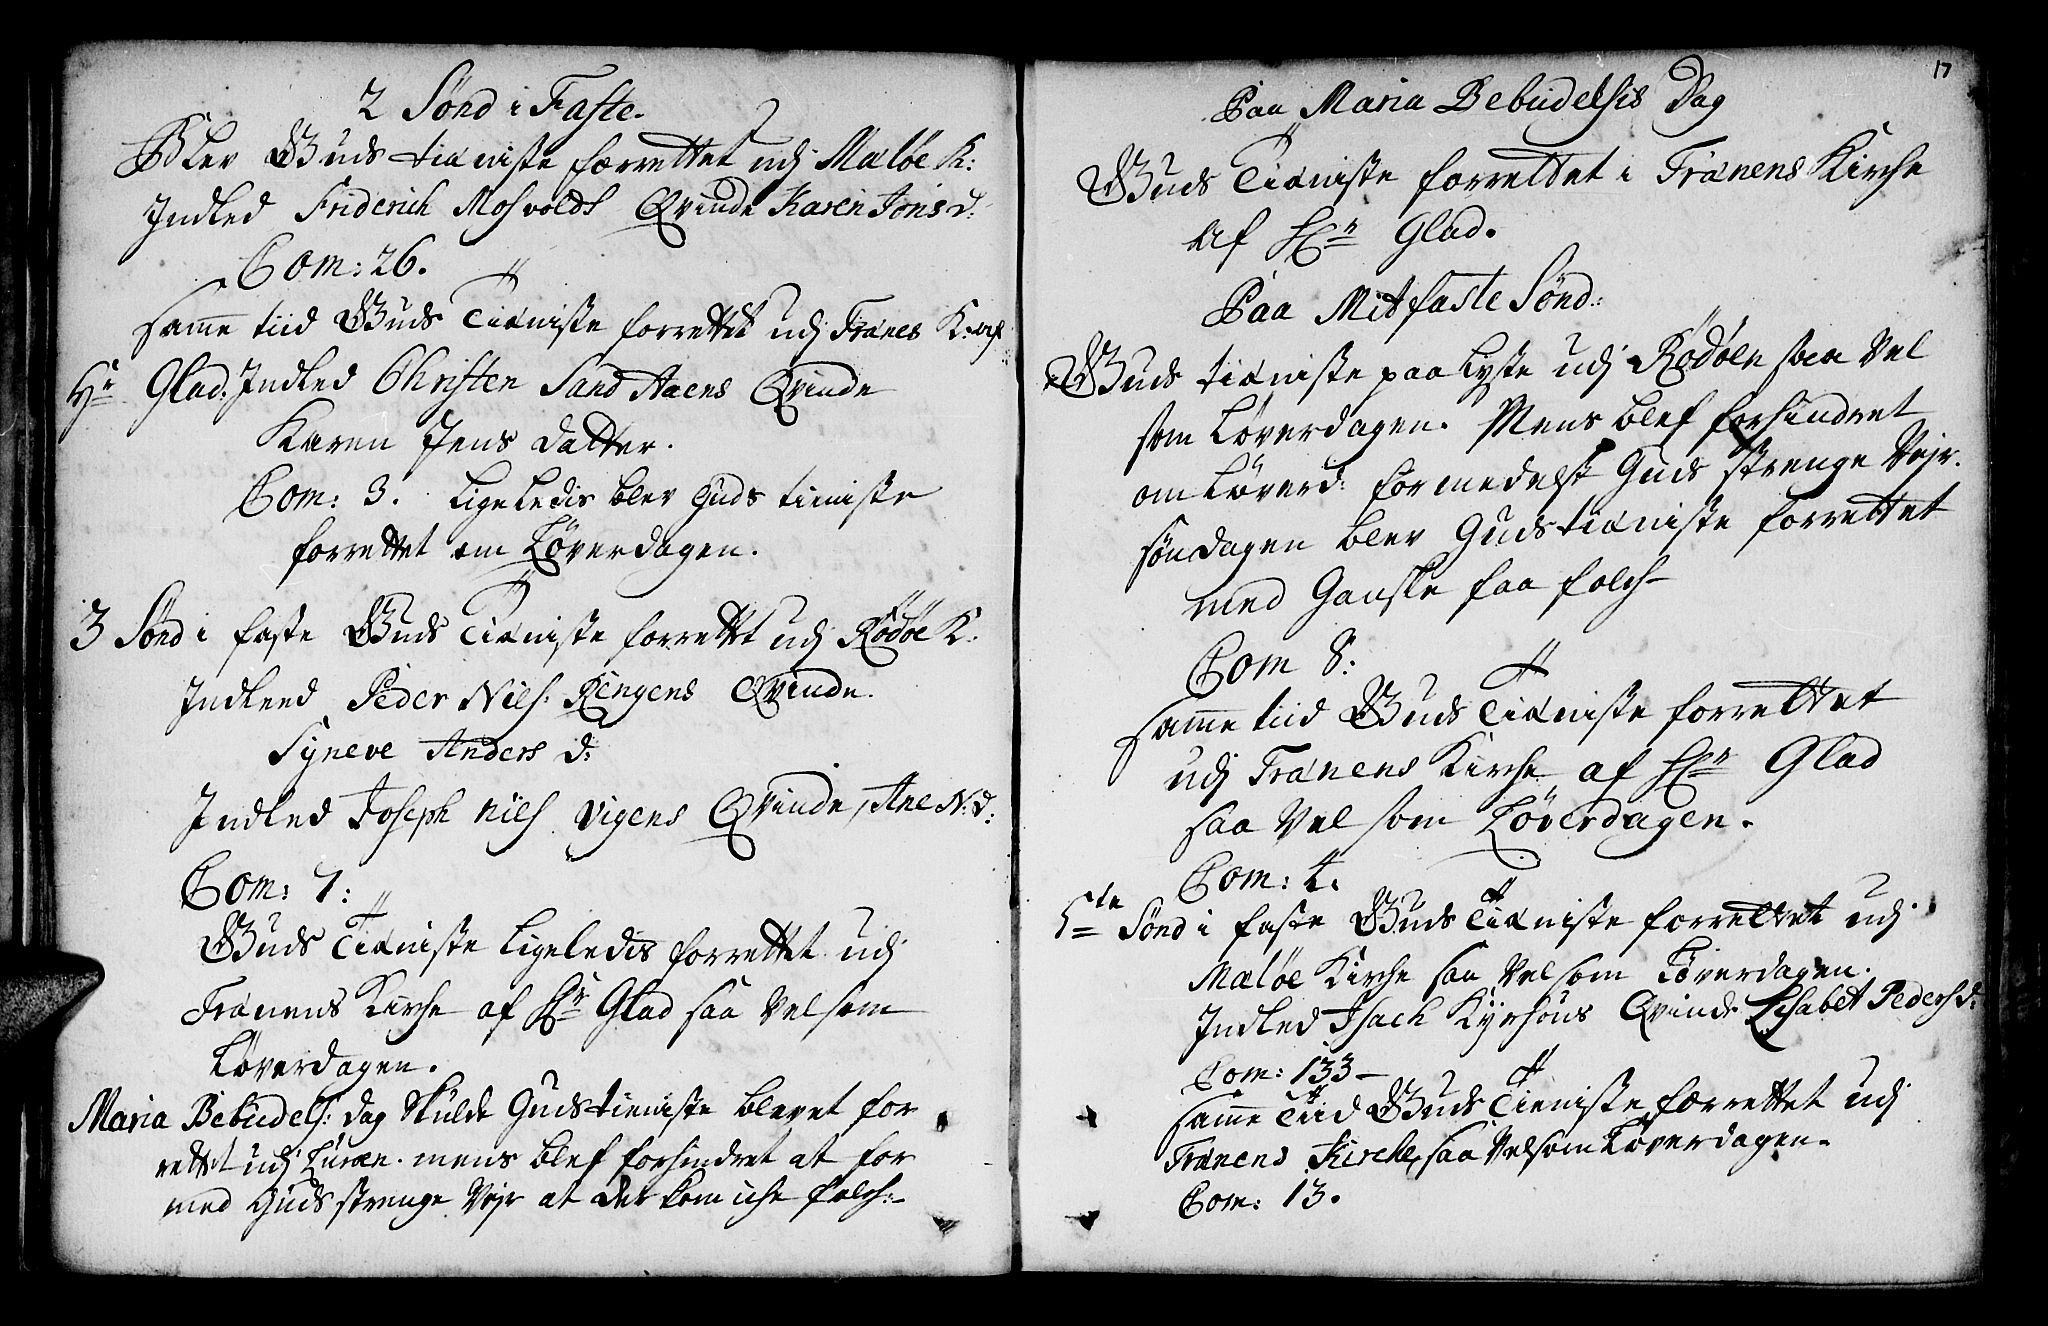 2 Sønd i Faste.
Blev Guds tieniste forrettet udj Meløe K:
Indled Friderich Mosvolds Qvinde Karen Jons d:
Com: 26.
Samme tiid Guds Tieniste forrettet udj Trænes K: af
Hr Glad. Indled Christen Sand Aaens Qvinde
Karen Jens datter.
Com: 3. Ligeledis blev Guds tieniste
forrettet om Løverdagen.
3 Sønd i faste Guds Tieniste forrettet udj Rødøe K:
Indleed Peder Niels: Ringens Qvinde.
Syneve Anders d:
Indled Joseph Niels Vigens Qvinde, Ane N:d:
Com: 7:
Guds Tieniste Ligeledis forrettet udj
Trænens Kirche af Hr Glad saa Vel som
Løverdagen.
Maria Bebudels: dag skulde Guds tieniste blevet for
rettet udj Lurøen. mens blef forhindret at for
med Guds strenge Vejr at der kom iche folch:-
17
Paa Maria Bebudelsis Dag
Guds Tieniste forrettet i Trænens Kirche
af Hr Glad.
Paa Mitfaste Sønd:
Guds tieniste paa Lyste udj Rødøen saa Vel
som Løverdagen. Mens blef forhindret
om Løverd: formedelst Guds strenge Vejr.
søndagen blev Guds tieniste forrettet
med Ganske faa folch-
Com 8:
Samme tiid Guds Tieniste forrettet
udj Trænens Kirche af Hr Glad
saa Vel som Løverdagen.
Com: 4.
5te Sønd i faste Guds Tieniste forrettet udj
Meløe Kirche saa Vel som Løverdagen.
Indled Isach Kyrhous Qvinde Lisabet Peders d:
Com: 133-
Samme Tiid Guds Tieniste forrettet udj
Trænens Kirche, saa Vel som Løverdagen.
Com: 13.